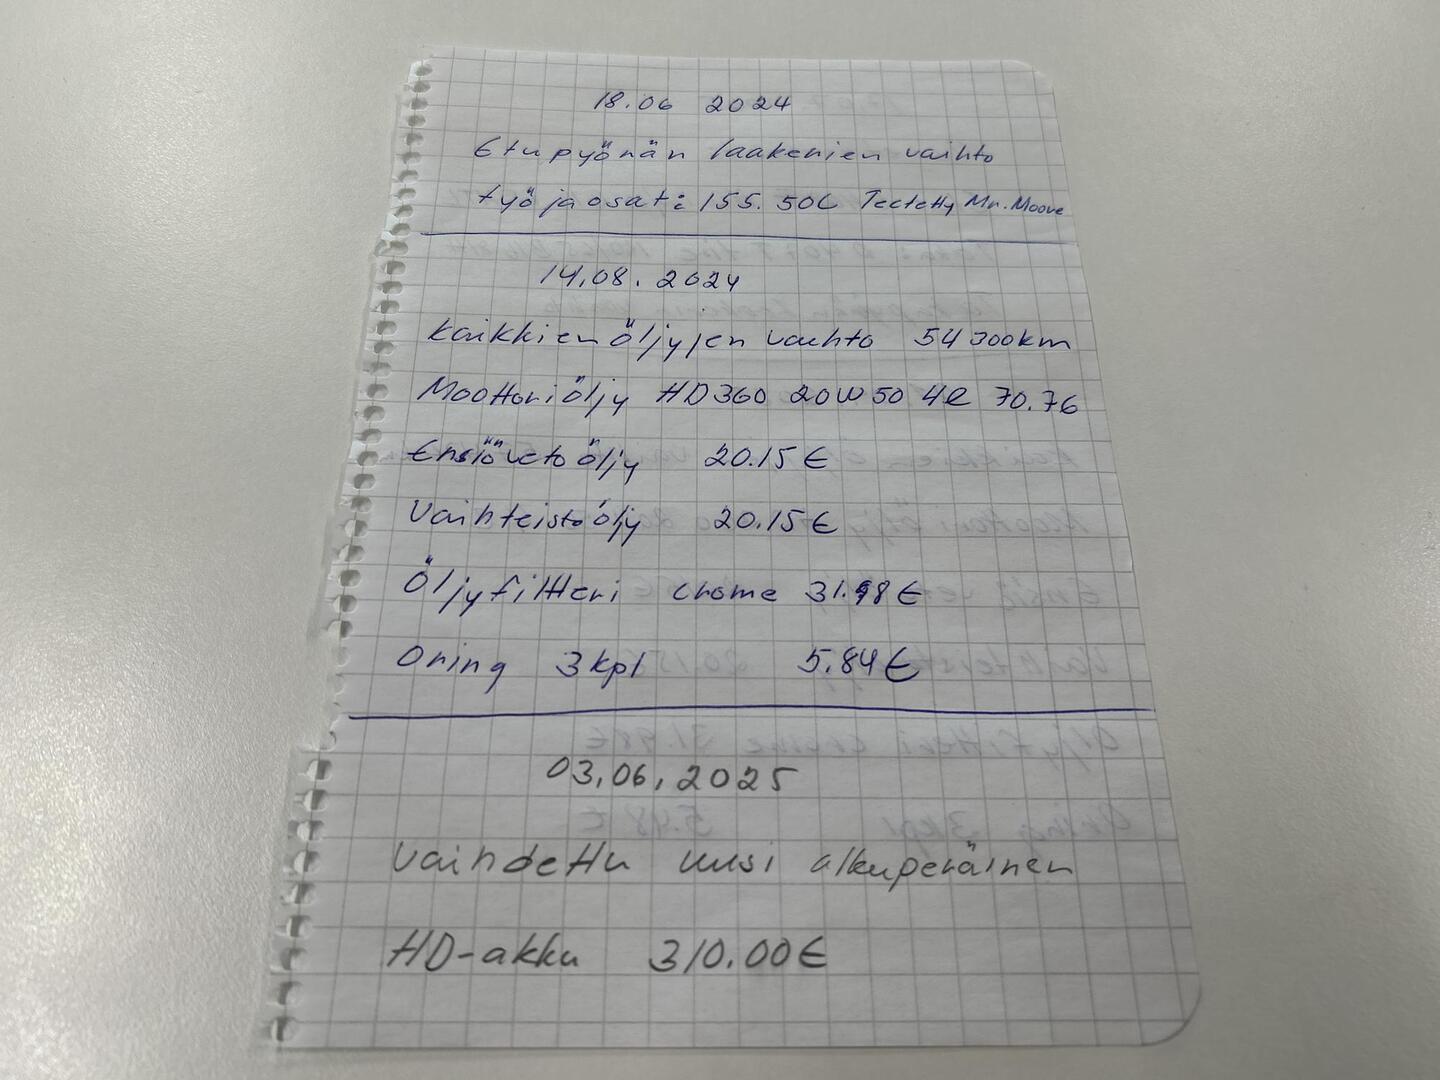 18.06 2024
Etupyörän laakerien vaihto
työ ja osat: 155.50€ Teetetty Mr. Moove
14.08.2024
Kaikkien öljyjen vaihto 54300km
Moottoriöljy HD360 20W50 4l 70.76
Ensiövetoöljy 20.15€
Vaihteistoöljy 20.15€
Öljyfiltteri chrome 31.98€
Oring 3kpl 5.84€
03.06.2025
Vaihdettu uusi alkuperäinen
HD-akku 310.00€